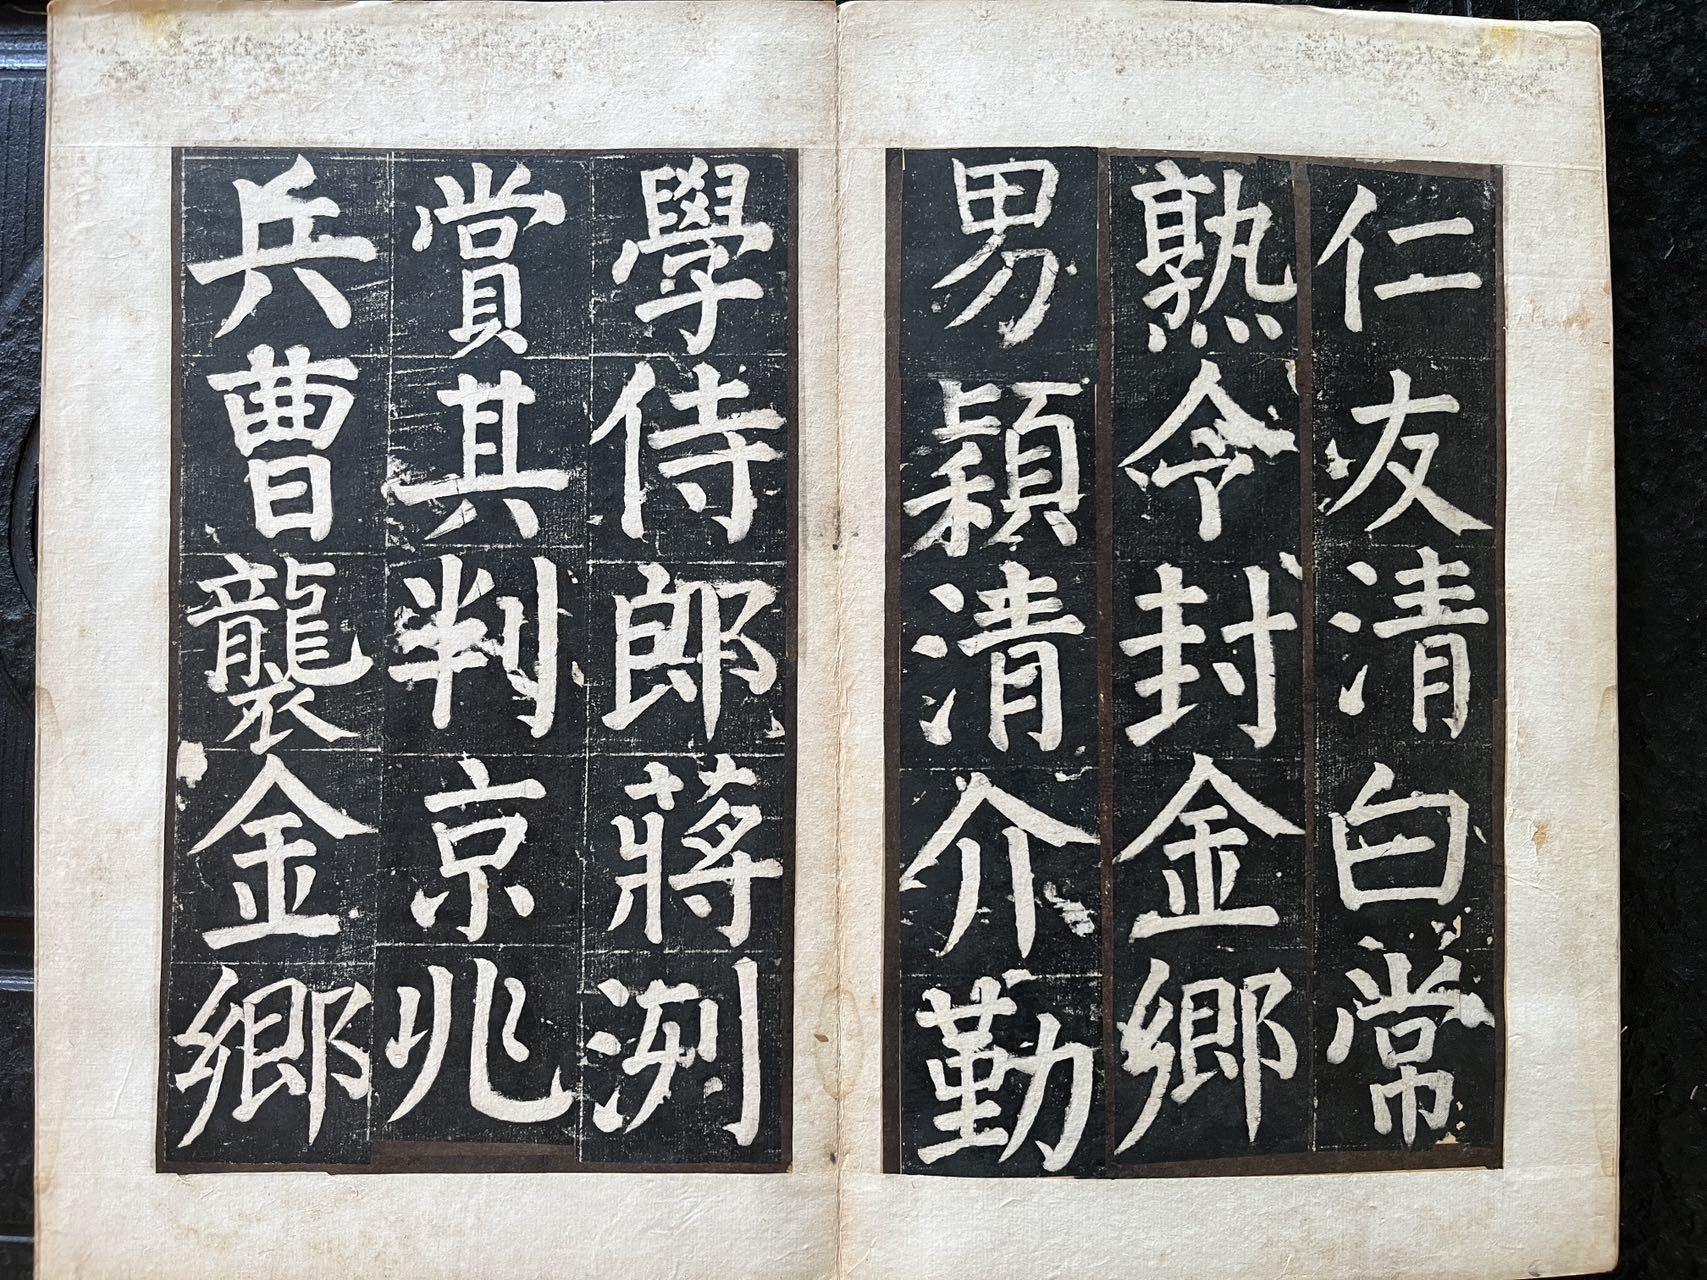 仁友清白常
熟令封金鄉
男頴清介勤
學侍郎蔣洌
賞其判京兆
兵曹襲金鄉